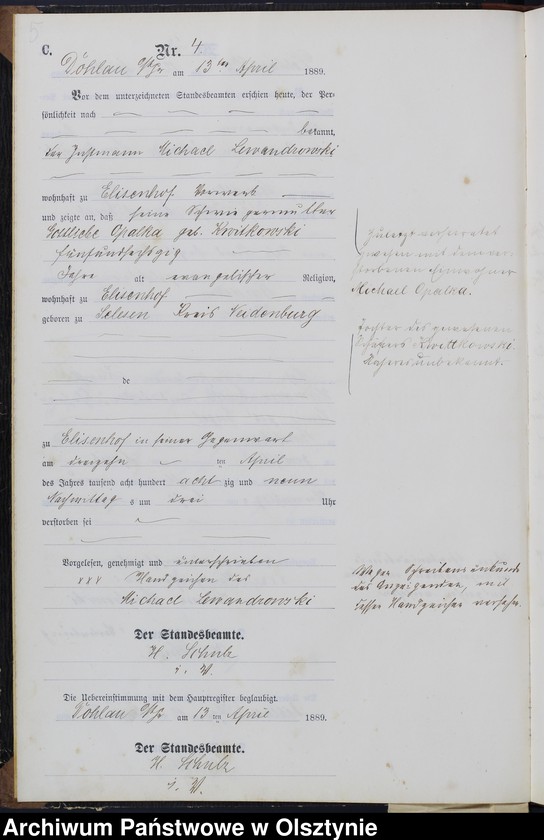 5
C.
Nr. 4.
Döhlau O/Pr. am 13ten April 1889.
Vor dem unterzeichneten Standesbeamten erschien heute, der Per-
sönlichkeit nach
bekannt,
der Instmann Michael Lewandrowski
wohnhaft zu Elisenhof Vorwerk
und zeigte an, daß seine Schwiegermutter
Gottliebe Opalka geb. Kwitkowski
fünfundsechszig
Jahre alt evangelischer Religion,
wohnhaft zu Elisenhof
geboren zu Kreis Neidenburg
zuletzt verheiratet
gewesen mit dem ver-
storbenen
Michael Opalka.
Tochter des gewesenen
Schäfers Kwittkowski
unbekannt.
de
zu Elisenhof in seiner Gegenwart
am dreizehn ten April
des Jahres tausend acht hundert acht zig und neun
Nachmittag s um drei Uhr
verstorben sei
Vorgelesen, genehmigt und unterschrieben
xxx Handzeichen des
Michael Lewandrowski
Wegen Schreibensunkunde
des Anzeigenden, mit
dessen Handzeichen versehen.
Der Standesbeamte.
H. Schulz
i. V.
Die Uebereinstimmung mit dem Hauptregister beglaubigt.
Döhlau O/Pr. am 13 ten April 1889.
Der Standesbeamte.
H. Schulz
i. V.
Archiwum Państwowe w Olsztynie